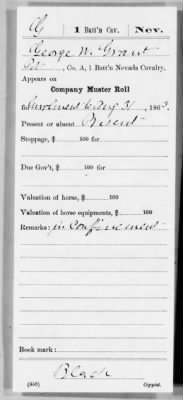 G | 1 Batt'n Cav. | Nev.
George W. Grant
Pvt, Co. A, 1 Batt'n Nevada Cavalry.
Appears on
Company Muster Roll
for Enrollment to Aug 31, 1863.
Present or absent Present
Stoppage, $ 100 for
Due Gov't, $ 100 for
Valuation of horse, $ 100
Valuation of horse equipments, $ 100
Remarks: in confinement
Book mark:
Black
(358) Copyist.